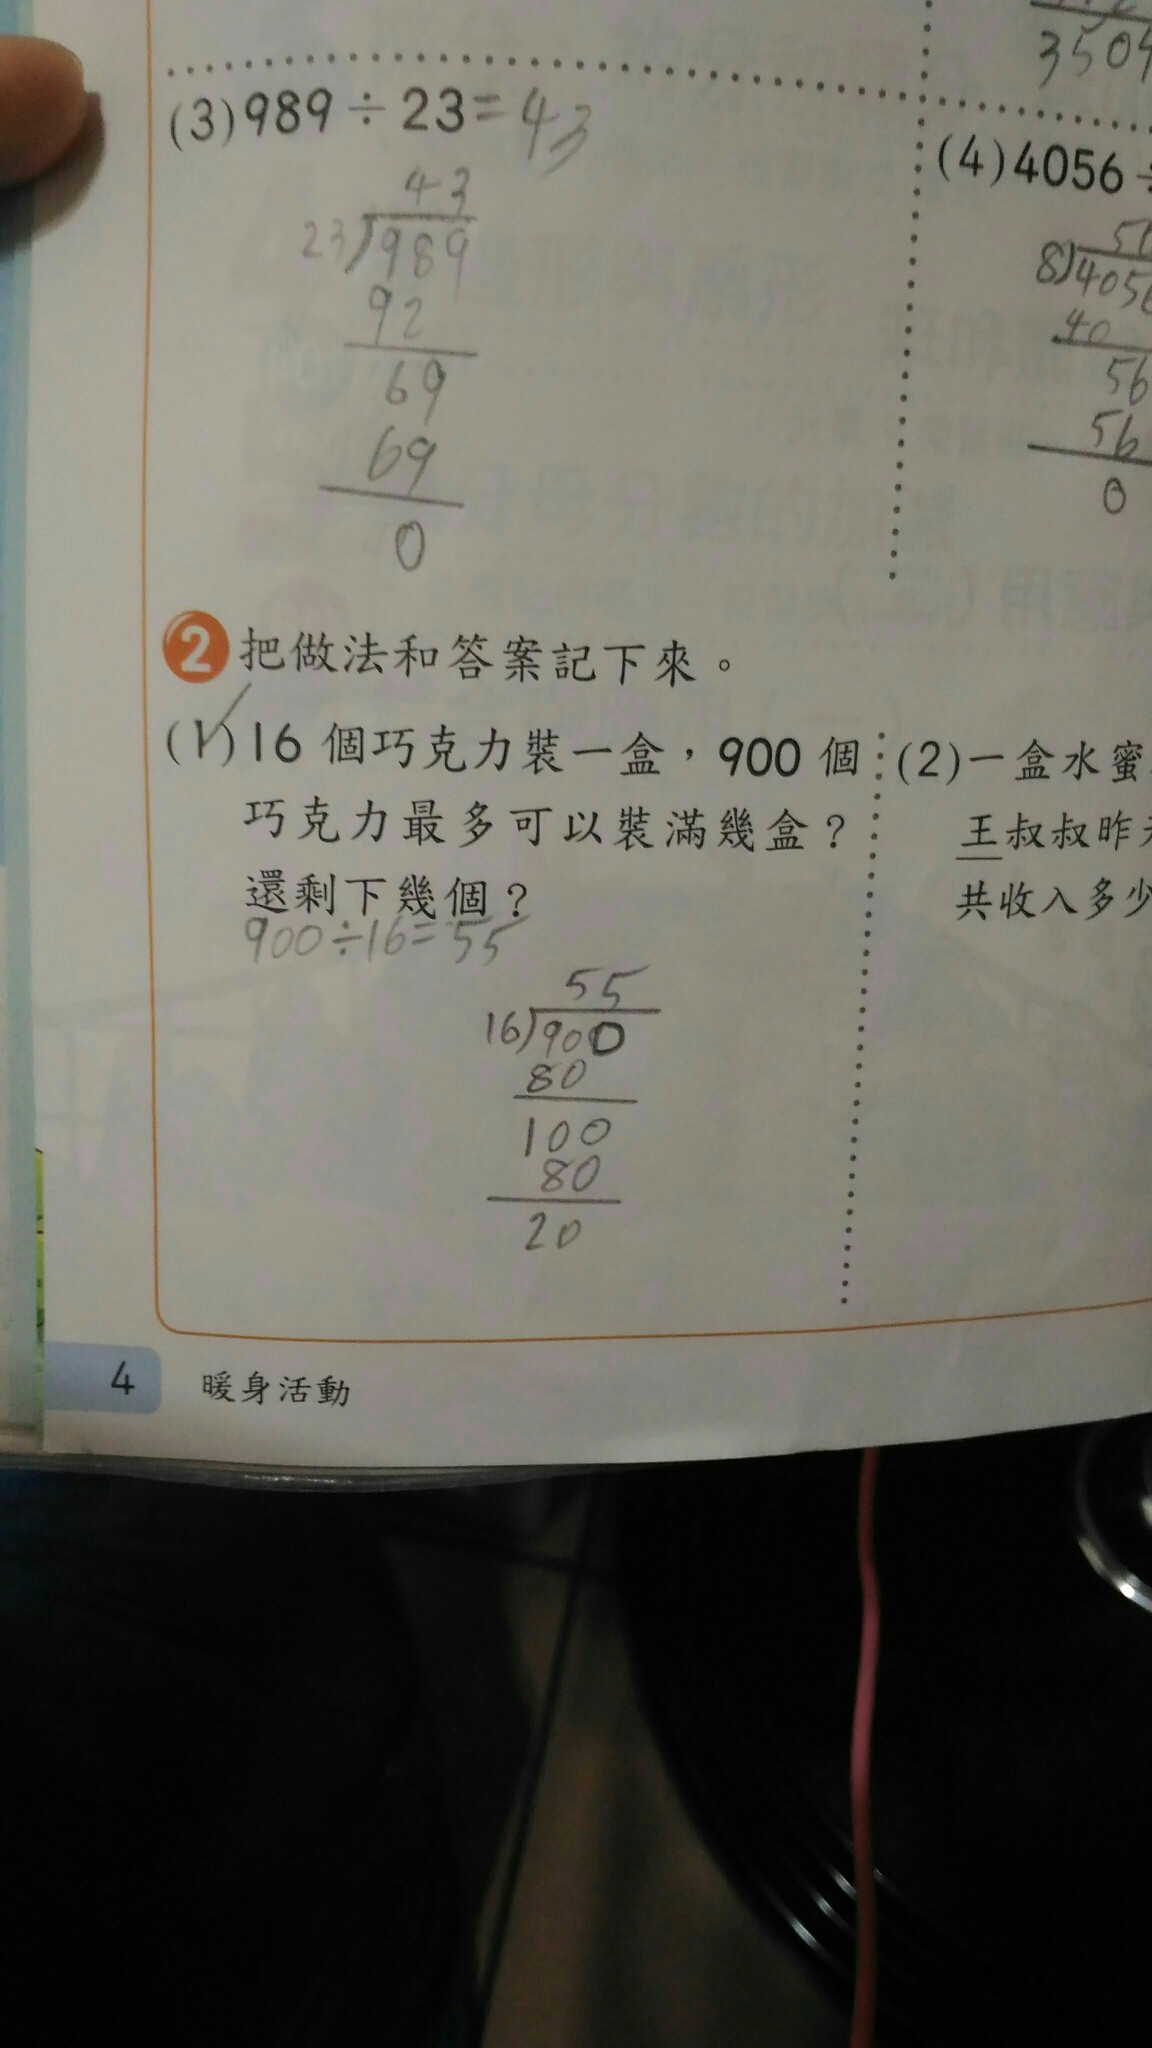 3504
(3) 989 ÷ 23 = 43
43
23)989
92
69
69
0
(4) 4056 ÷
8)4056
40
56
56
0
2 把做法和答案記下來。
(1) 16 個巧克力裝一盒，900 個
巧克力最多可以裝滿幾盒？
還剩下幾個？
900÷16=55
55
16)900
80
100
80
20
(2) 一盒水蜜
王叔叔昨天
共收入多少
4 暖身活動